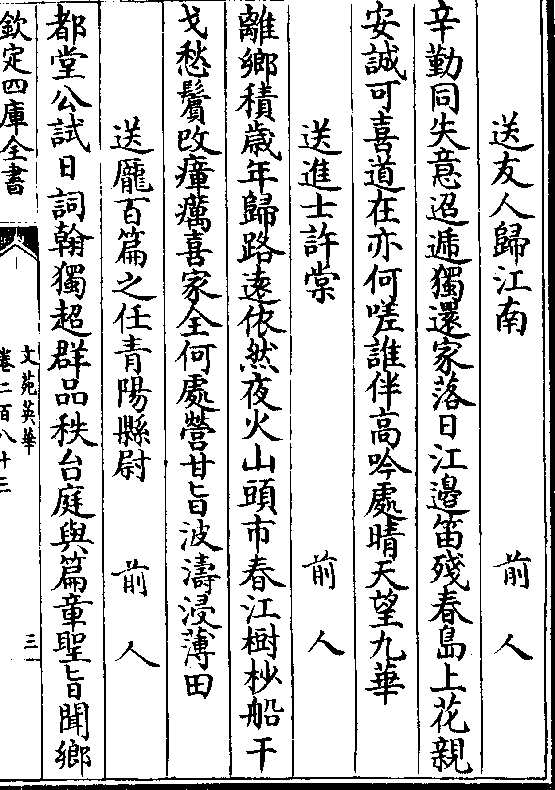 送友人歸江南 前人
辛勤同失意迢遞獨還家落日江邉笛殘春島上花親
安誠可喜道在亦何嗟誰伴高吟處晴天望九華
送進士許棠 前人
離鄉積歳年歸路逺依然夜火山頭市春江樹杪船干
戈愁鬢改瘴癘喜家全何處營甘旨波濤浸薄田
送龐百篇之任青陽縣尉 前人
都堂公試日詞翰獨超群品秩台庭與篇章聖旨聞鄉
欽定四庫全書
文苑英華
卷二百八十三
三